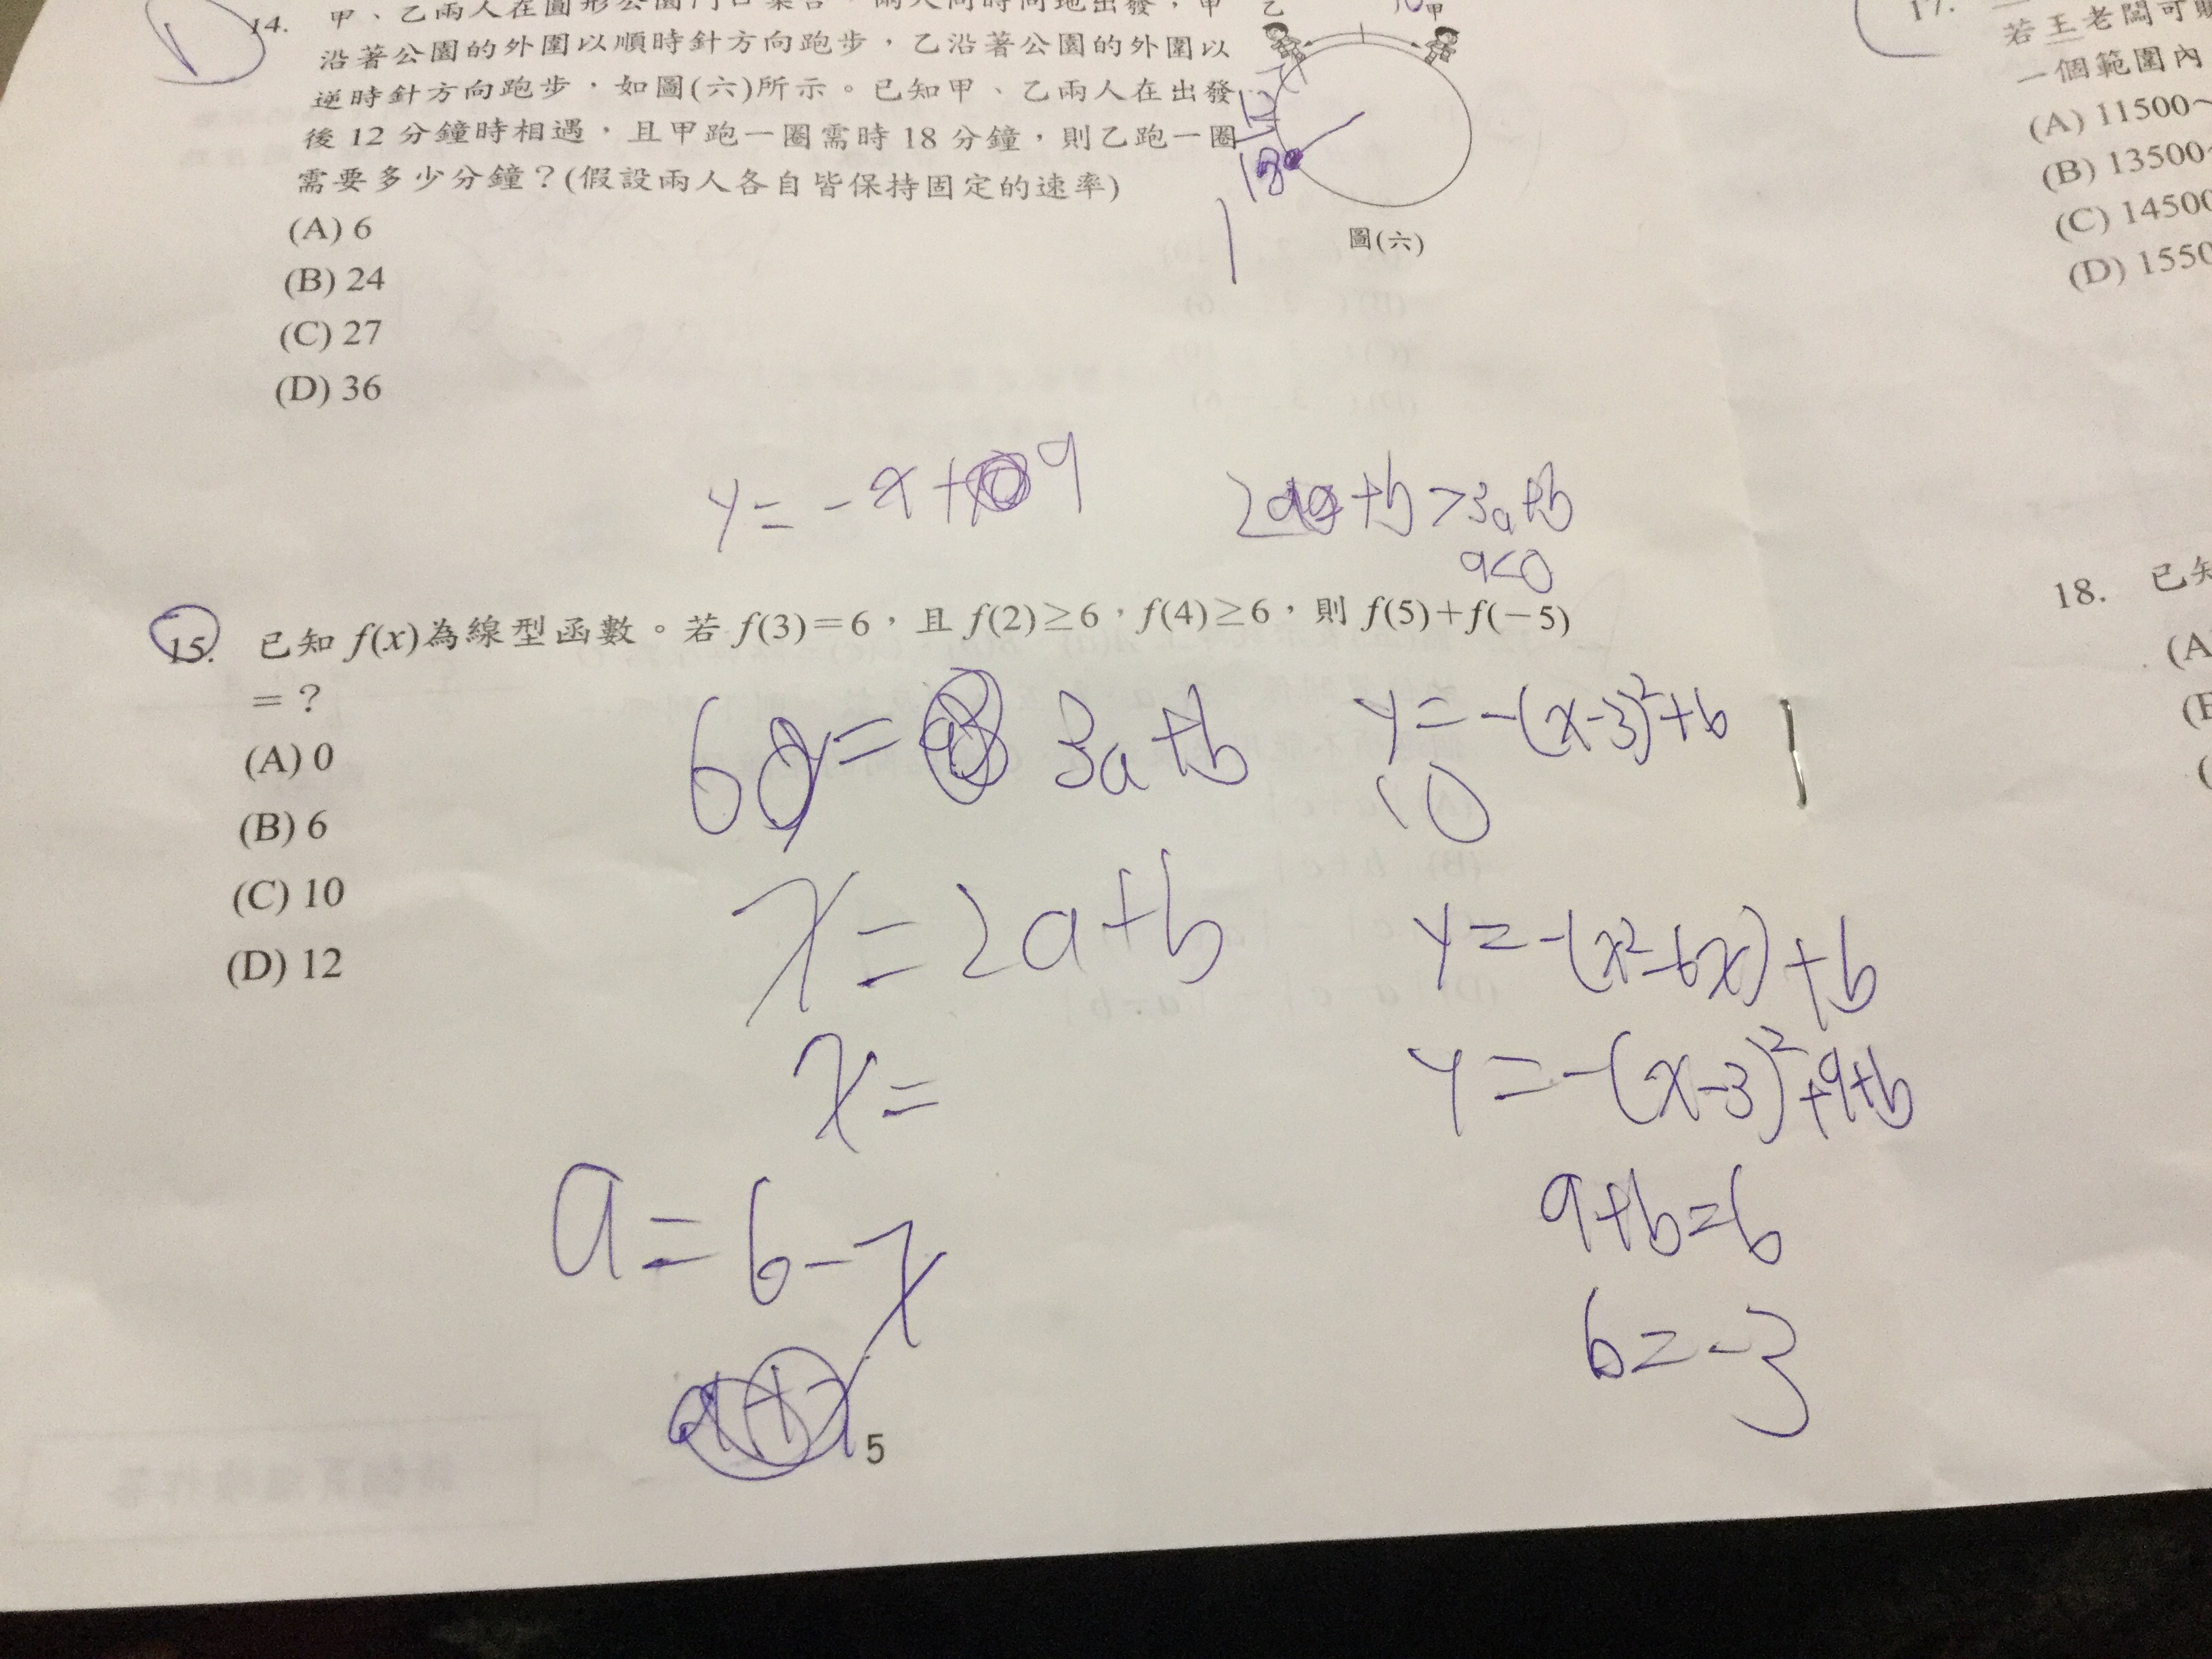 14. 甲、乙兩人在圓形公園門口集合,兩人同時同地出發,甲
沿著公園的外圍以順時針方向跑步,乙沿著公園的外圍以
逆時針方向跑步,如圖(六)所示。已知甲、乙兩人在出發
後 12 分鐘時相遇,且甲跑一圈需時 18 分鐘,則乙跑一圈
需要多少分鐘?(假設兩人各自皆保持固定的速率)
(A) 6
(B) 24
(C) 27
(D) 36
乙
甲
12
18
1
圖(六)
y = -x + 9
2a + b > 3a + b
a<0
15. 已知 f(x)為線型函數。若 f(3)=6,且 f(2)≥6,f(4)≥6,則 f(5)+f(-5)
=?
(A) 0
(B) 6
(C) 10
(D) 12
6 = 3a + b
x = 2a + b
x =
a = 6 - x
y = -(x-3)²+b
10
y = -(x²-6x)+b
y = -(x-3)²+9+b
9+b=6
b=-3
5
17.
若王老闆可
一個範圍內
(A) 11500~
(B) 13500~
(C) 14500
(D) 1550
18. 已知
(A
(